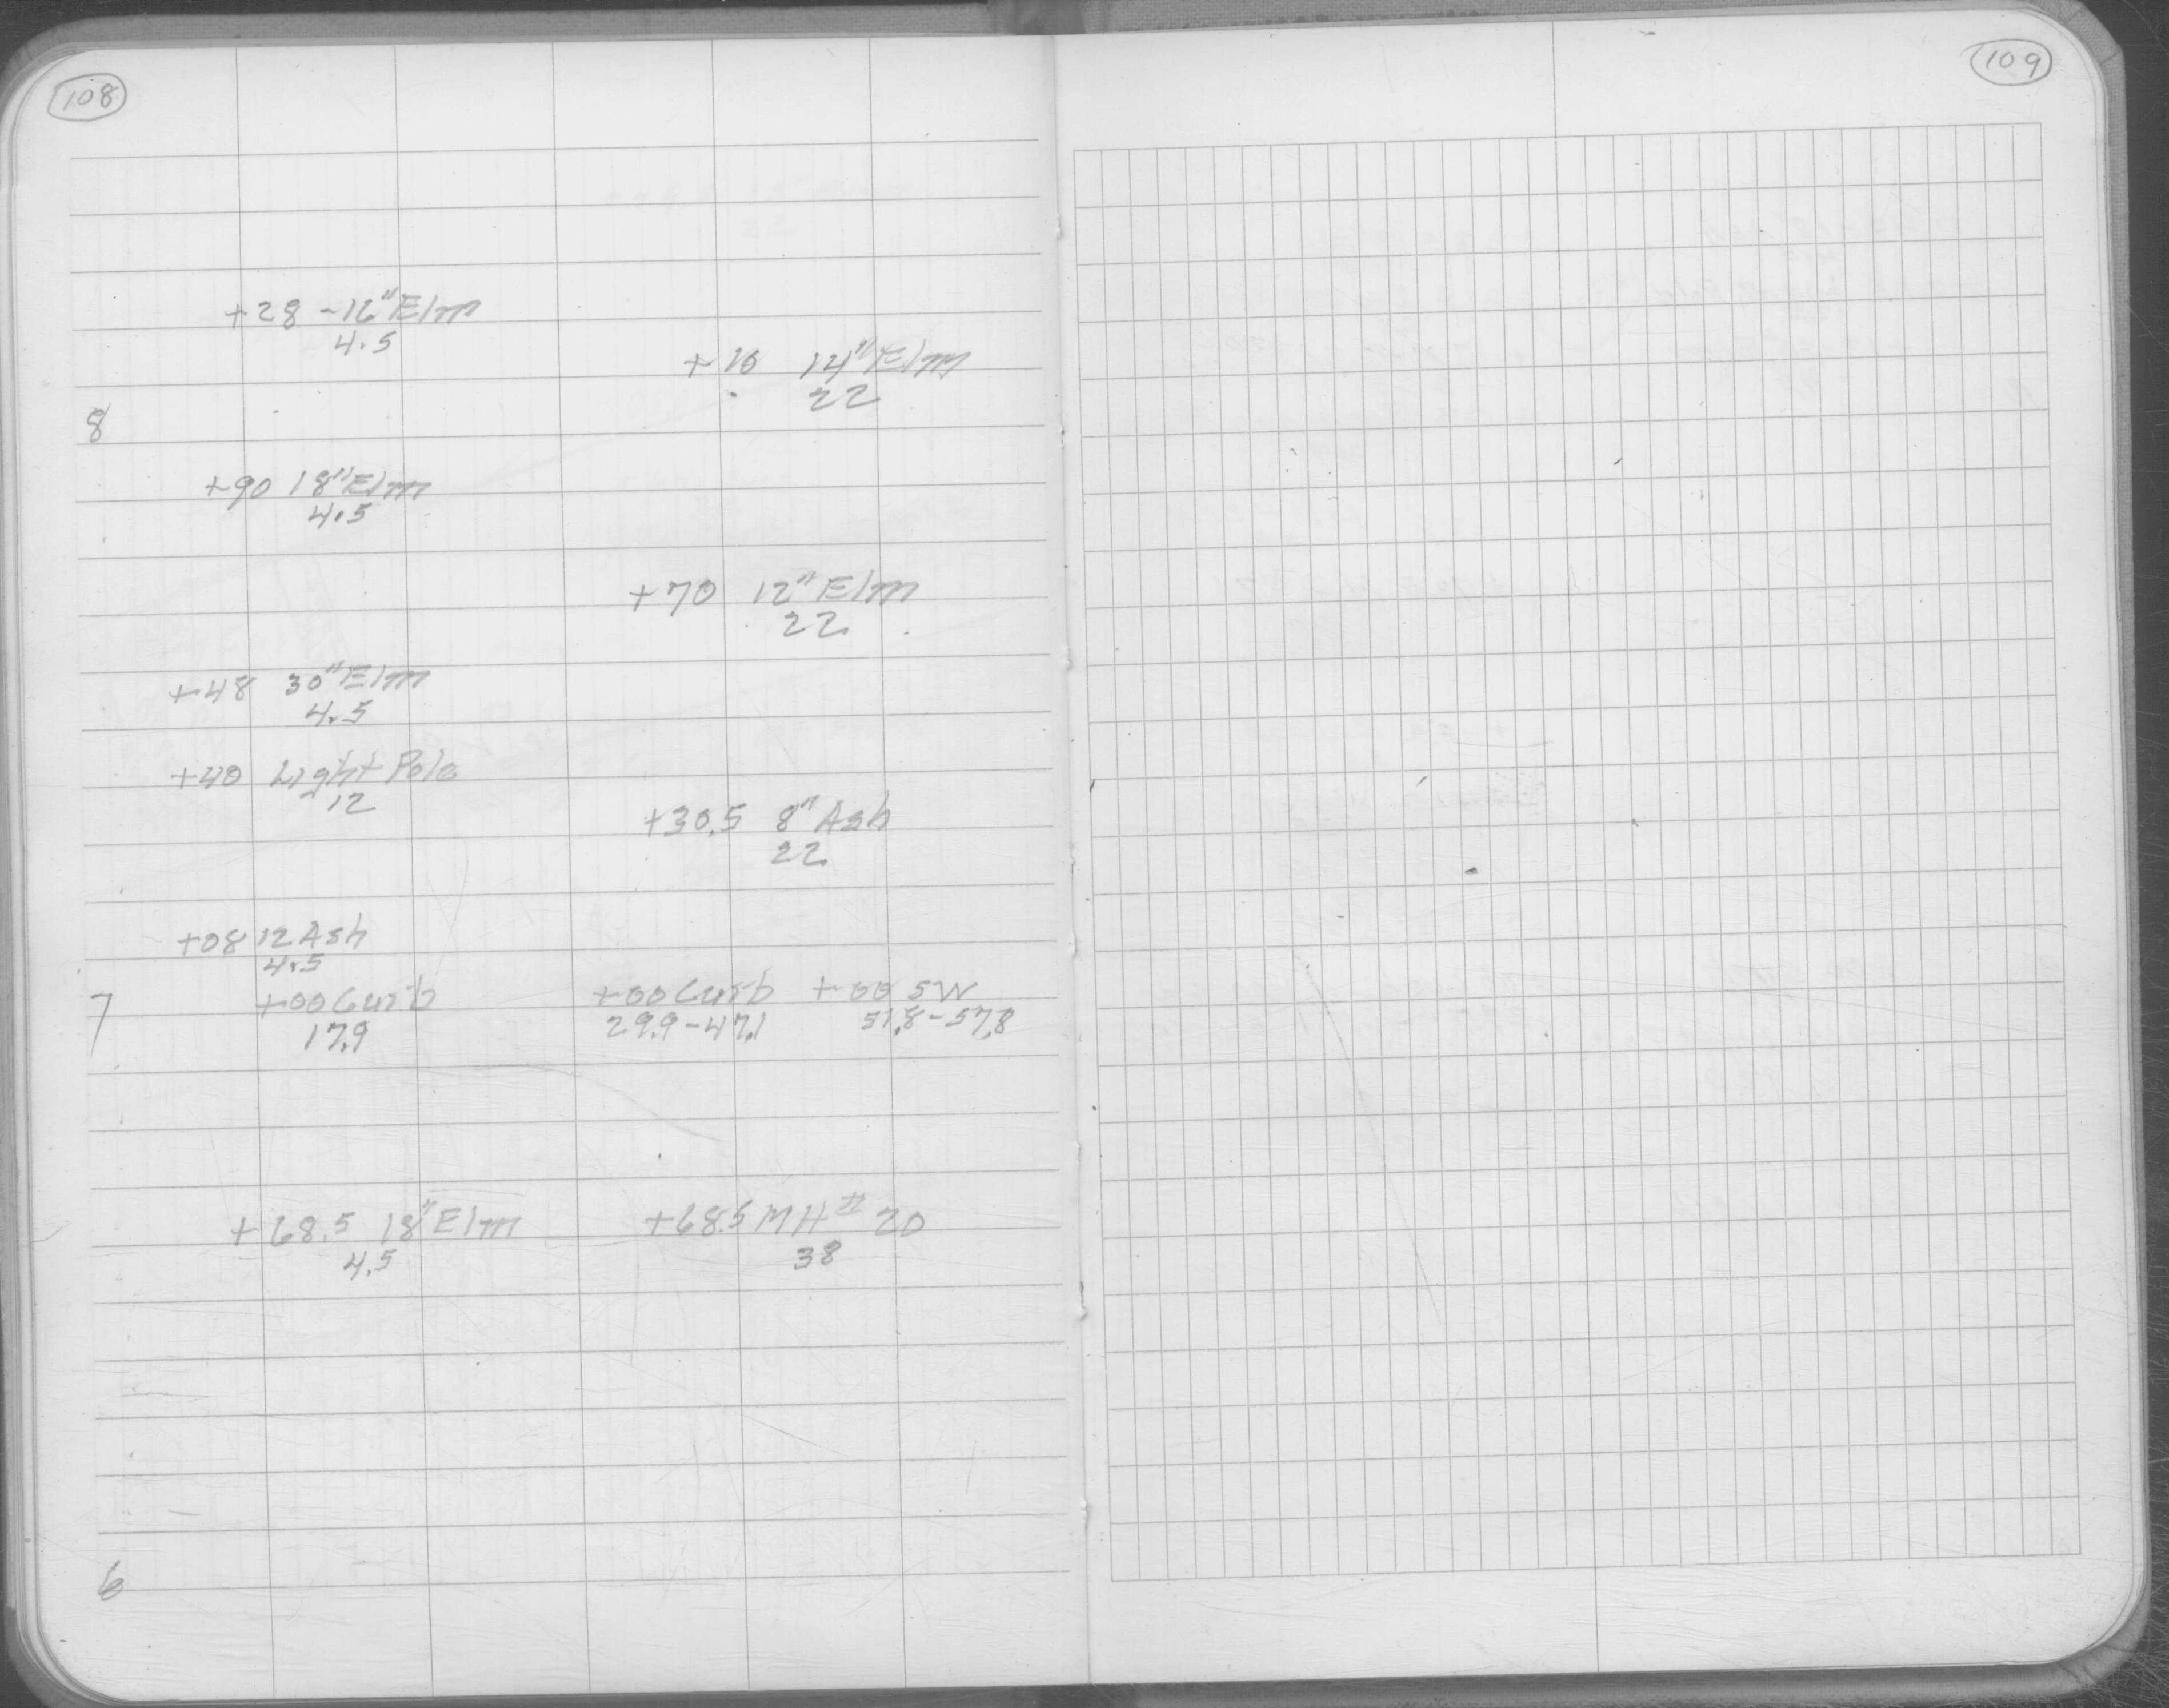 108
109
+28 -16" Elm
4.5
+10 14" Elm
22
8
+90 18" Elm
4.5
+70 12" Elm
22
+48 30" Elm
4.5
+40 Light Pole
12
+30.5 8" Ash
22
+08 12 Ash
4.5
7 +00 Curb +00 Curb +00 SW
17.9 29.9-47.1 51.8-57.8
+68.5 18" Elm +68.5 MH # 20
4.5 38
6